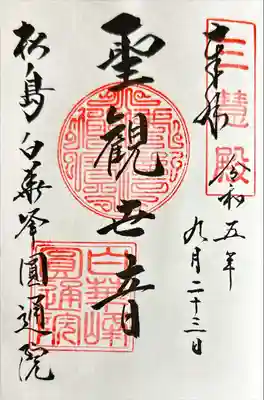 三慧殿
奉拝
令和五年
九月二十三日
聖観世音
松島白華峰圓通院
白華峰
圓通院